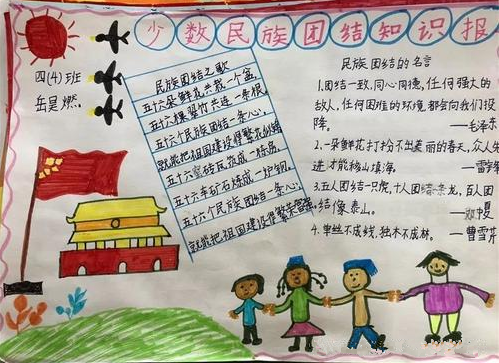 少数民族团结知识报
四(4)班
岳昊燃.
民族团结之歌
五十六朵鲜花共栽一个盆,
五十六棵翠竹共连一条根
五十六个民族团结一条心,
就能把祖国建设得繁花似锦
五十六
五十六车矿石炼成一炉钢.
五十六个民族团结一条心,
就能把祖国建设得繁荣富强
民族团结的名言
1.团结一致,同心同德,任何强大的
敌人,任何困难的环境都会向我们投
降.
——毛泽东
2.一朵鲜花打扮不出美丽的春天,众人先
进才能移山填海.
——雷锋
3.五人团结一只虎,十人团结一条龙,百人团
结像泰山.
——邓中夏
4.单丝不成线,独木不成林.
——曹雪芹